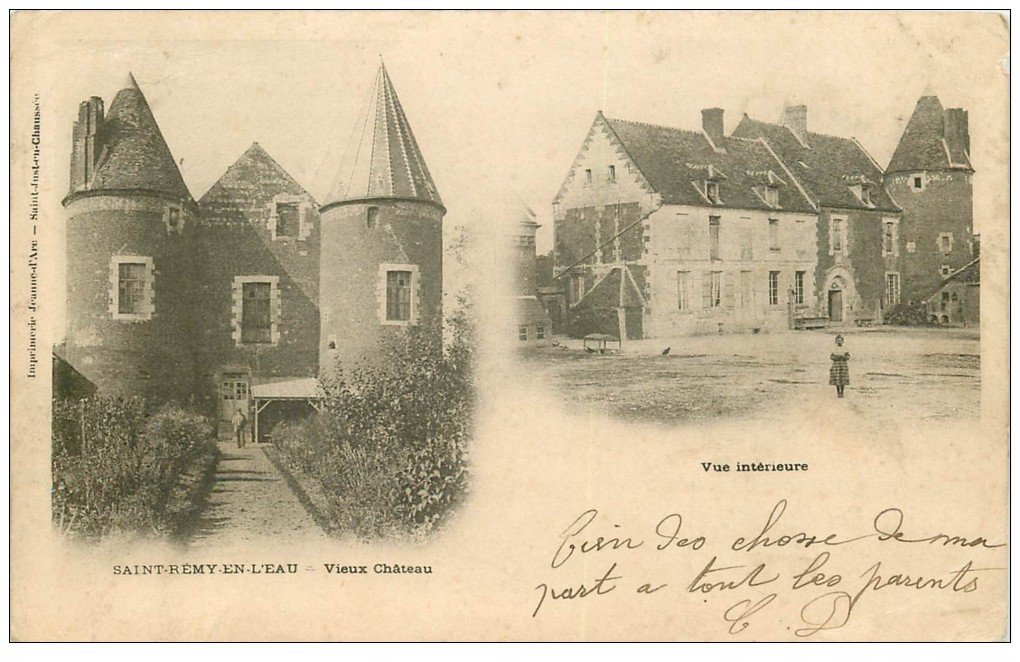 Imprimerie Jeanne-d'Arc — Saint-Just-en-Chaussée
SAINT-RÉMY-EN-L'EAU – Vieux Château
Vue intérieure
bien des chosse de ma
part a tout les parents
C. D.